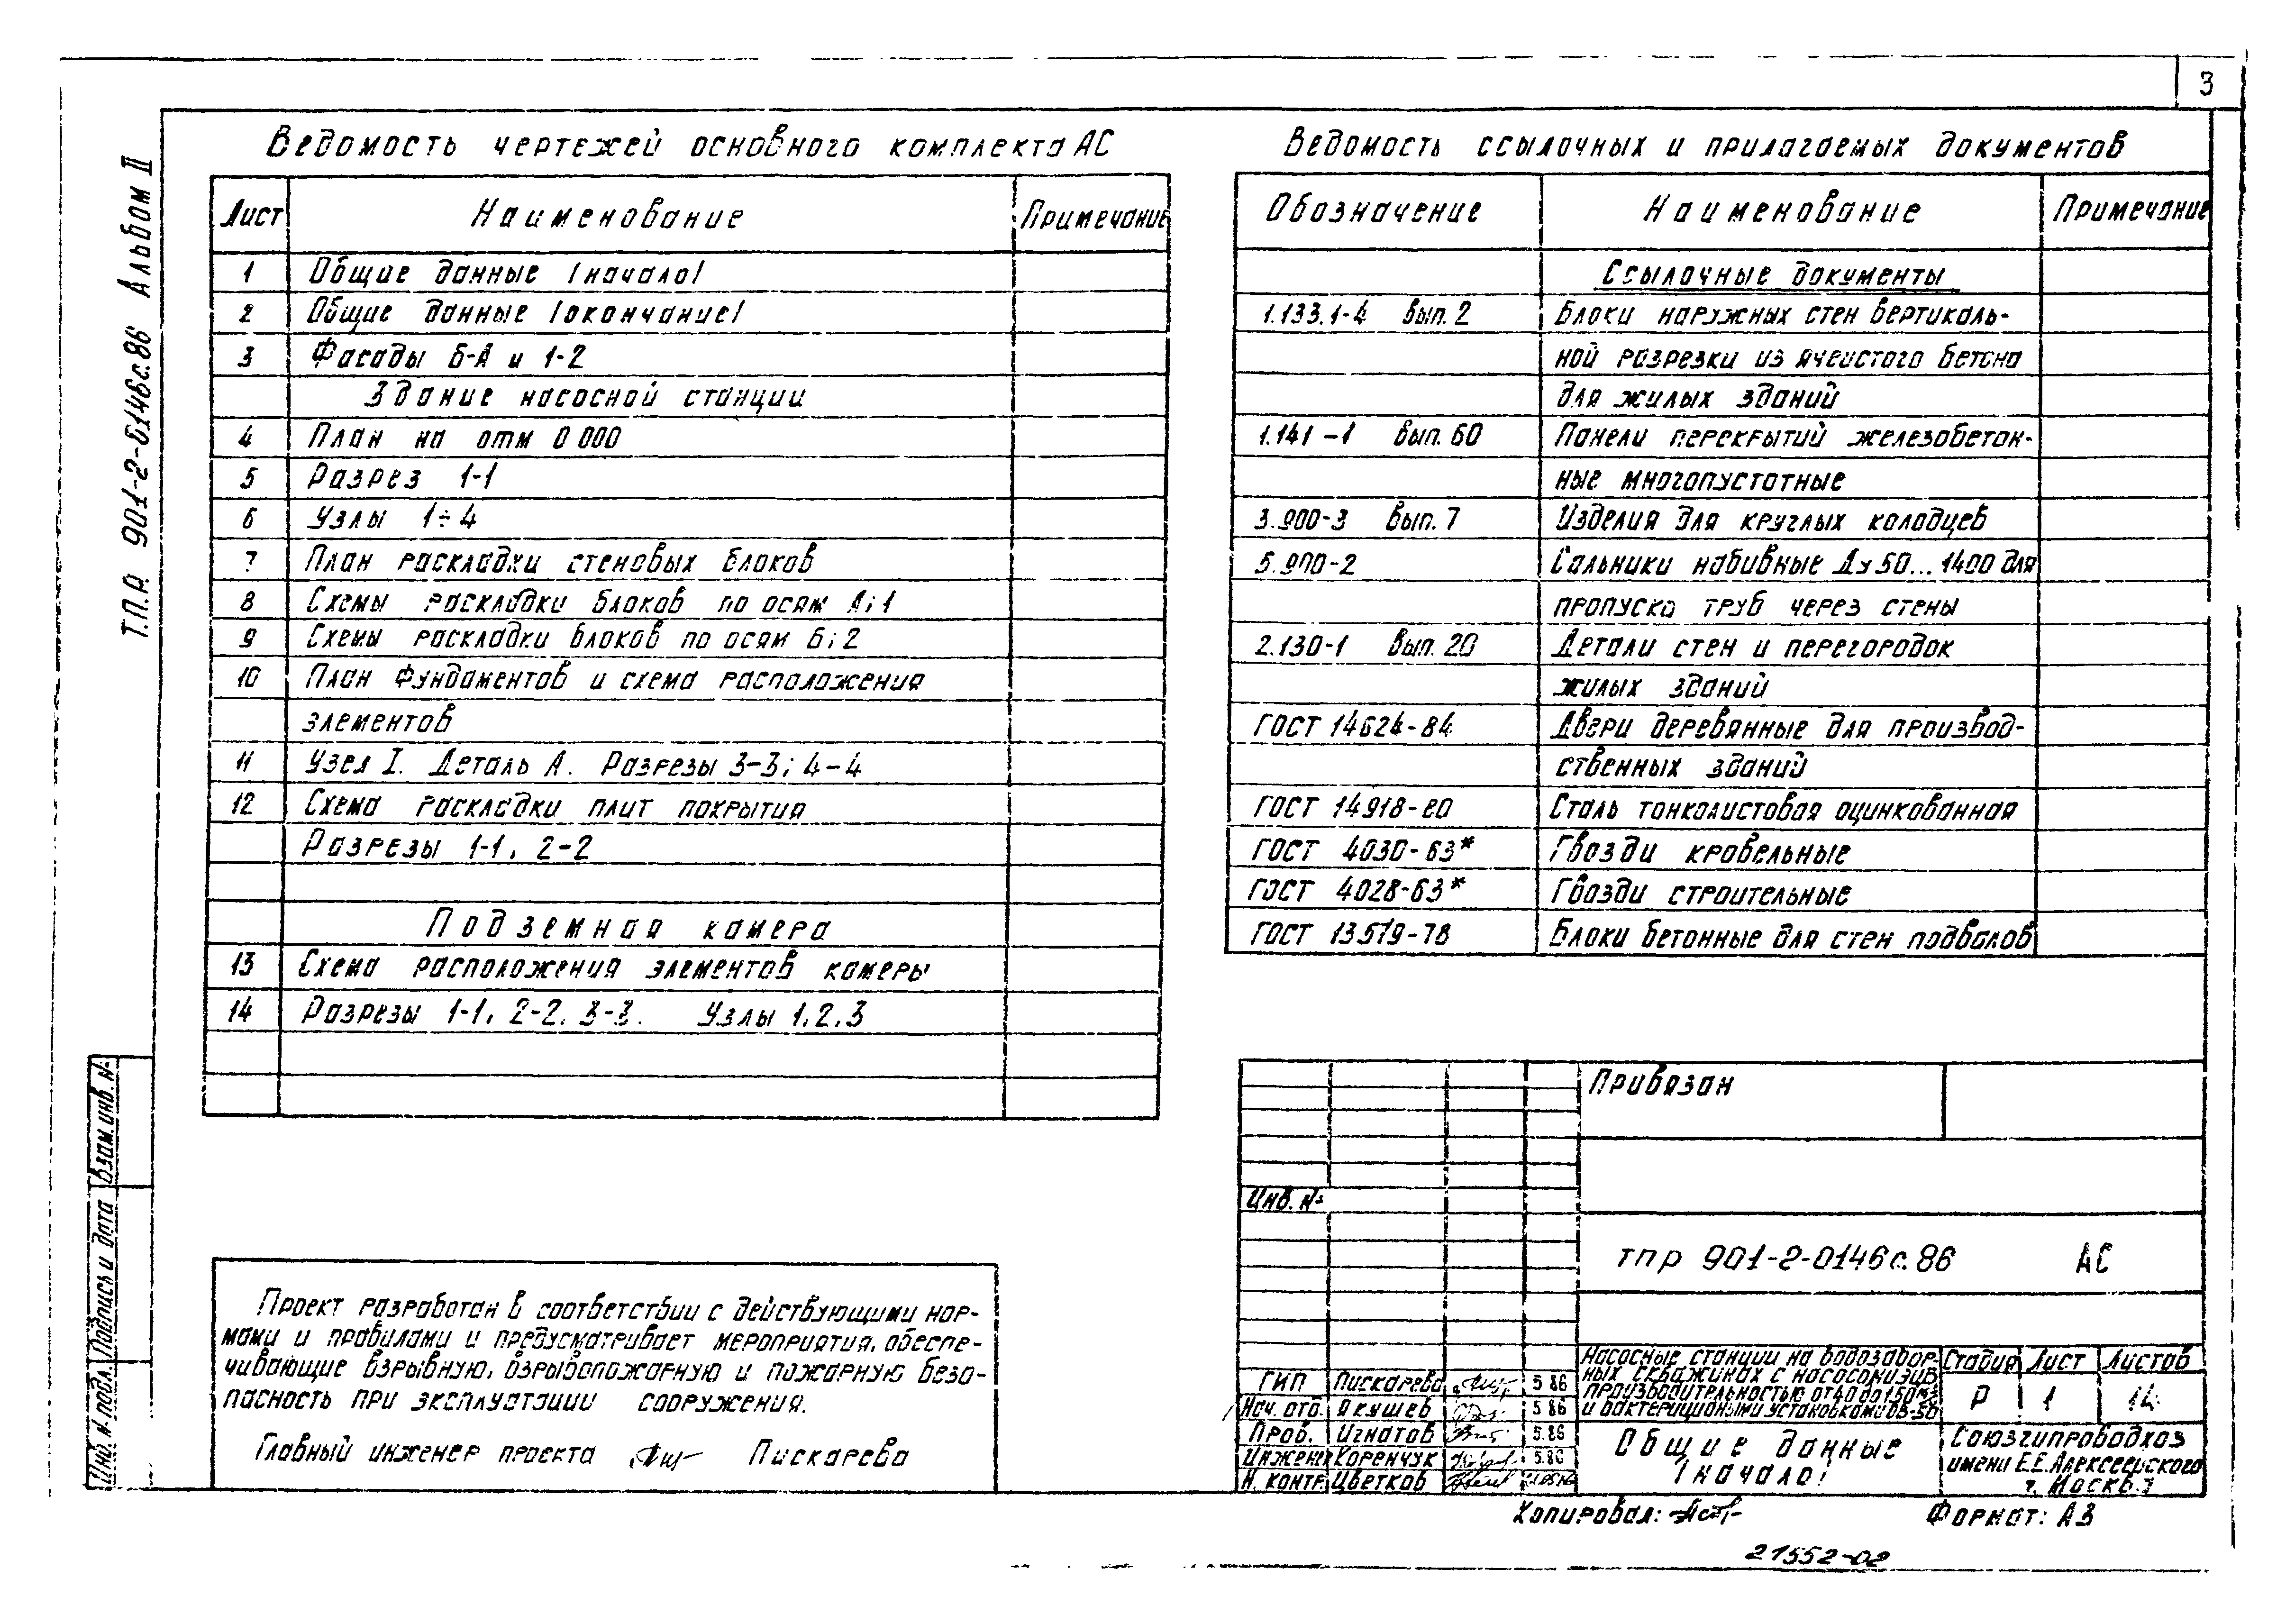 3
Т.П.Р. 901-2-0146с.86 Альбом II
Ведомость чертежей основного комплекта АС
Лист Наименование Примечание
1 Общие данные /начало/
2 Общие данные /окончание/
3 Фасады Б-А и 1-2
Здание насосной станции
4 План на отм 0 000
5 Разрез 1-1
6 Узлы 1÷4
7 План раскладки стеновых блоков
8 Схемы раскладки блоков по осям А; 1
9 Схемы раскладки блоков по осям Б; 2
10 План фундаментов и схема расположения
элементов
11 Узел I. Деталь А. Разрезы 3-3; 4-4
12 Схема раскладки плит покрытия
Разрезы 1-1, 2-2
Подземная камера
13 Схема расположения элементов камеры
14 Разрезы 1-1, 2-2, 3-3. Узлы 1,2,3
Ведомость ссылочных и прилагаемых документов
Обозначение Наименование Примечание
Ссылочные документы
1.133.1-4 вып. 2 Блоки наружных стен вертикаль-
ной разрезки из ячеистого бетона
для жилых зданий
1.141-1 вып. 60 Панели перекрытий железобетон-
ные многопустотные
3.900-3 вып. 7 Изделия для круглых колодцев
5.900-2 Сальники набивные Ду 50... 1400 для
пропуска труб через стены
2.130-1 вып. 20 Детали стен и перегородок
жилых зданий
ГОСТ 14624-84 Двери деревянные для производ-
ственных зданий
ГОСТ 14918-80 Сталь тонколистовая оцинкованная
ГОСТ 4030-63* Гвозди кровельные
ГОСТ 4028-63* Гвозди строительные
ГОСТ 13579-78 Блоки бетонные для стен подвалов
Проект разработан в соответствии с действующими нор-
мами и правилами и предусматривает мероприятия, обеспе-
чивающие взрывную, взрывопожарную и пожарную безо-
пасность при эксплуатации сооружения.
Главный инженер проекта Пискарева
Привязан
Инв. №
тпр 901-2-0146с.86 АС
ГИП Пискарева 5 86
Нач. отд. Якушев 5 86
Пров. Игнатов 5.86
Инжен. Коренчук 5.86
Н. контр. Цветков
Насосные станции на водозабор-
ных скважинах с насосами ЭЦВ
производительностью от 40 до 150 м³
и бактерицидными установками ОВ-50
Стадия Лист Листов
Р 1 14
Общие данные
/начало/
Союзгипроводхоз
имени Е.Е. Алексеевского
г. Москва
Инв. № подл. Подпись и дата Взам. инв. №
Копировал: Формат: А3
21552-02